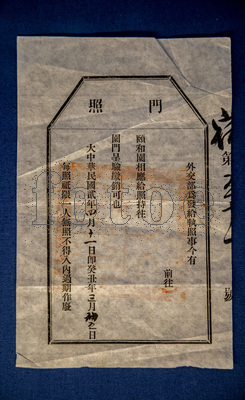 門照
外交部爲發給執照事今有
前往
頤和園相應給照持往
園門呈驗繳銷可也
大中華民國貳年四月十一日即癸丑年三月初五日
每照祇限一人無照不得入內過期作廢
第
號
fotoe